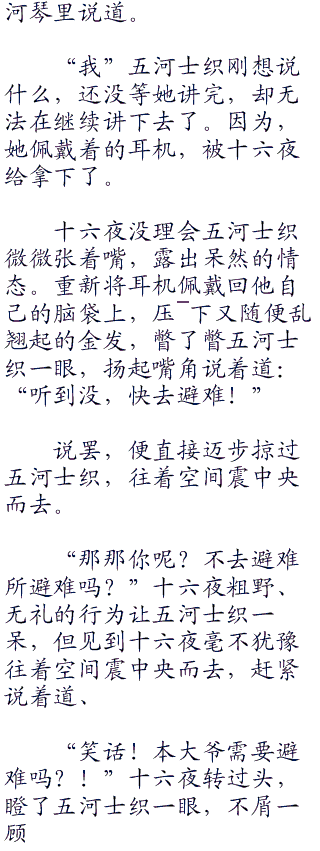 河琴里说道。
“我”五河士织刚想说
什么，还没等她讲完，却无
法在继续讲下去了。因为，
她佩戴着的耳机，被十六夜
给拿下了。
十六夜没理会五河士织
微微张着嘴，露出呆然的情
态。重新将耳机佩戴回他自
己的脑袋上，压¯下又随便乱
翘起的金发，瞥了瞥五河士
织一眼，扬起嘴角说着道：
“听到没，快去避难！”
说罢，便直接迈步掠过
五河士织，往着空间震中央
而去。
“那那你呢？不去避难
所避难吗？”十六夜粗野、
无礼的行为让五河士织一
呆，但见到十六夜毫不犹豫
往着空间震中央而去，赶紧
说着道、
“笑话！本大爷需要避
难吗？！”十六夜转过头，
瞪了五河士织一眼，不屑一
顾